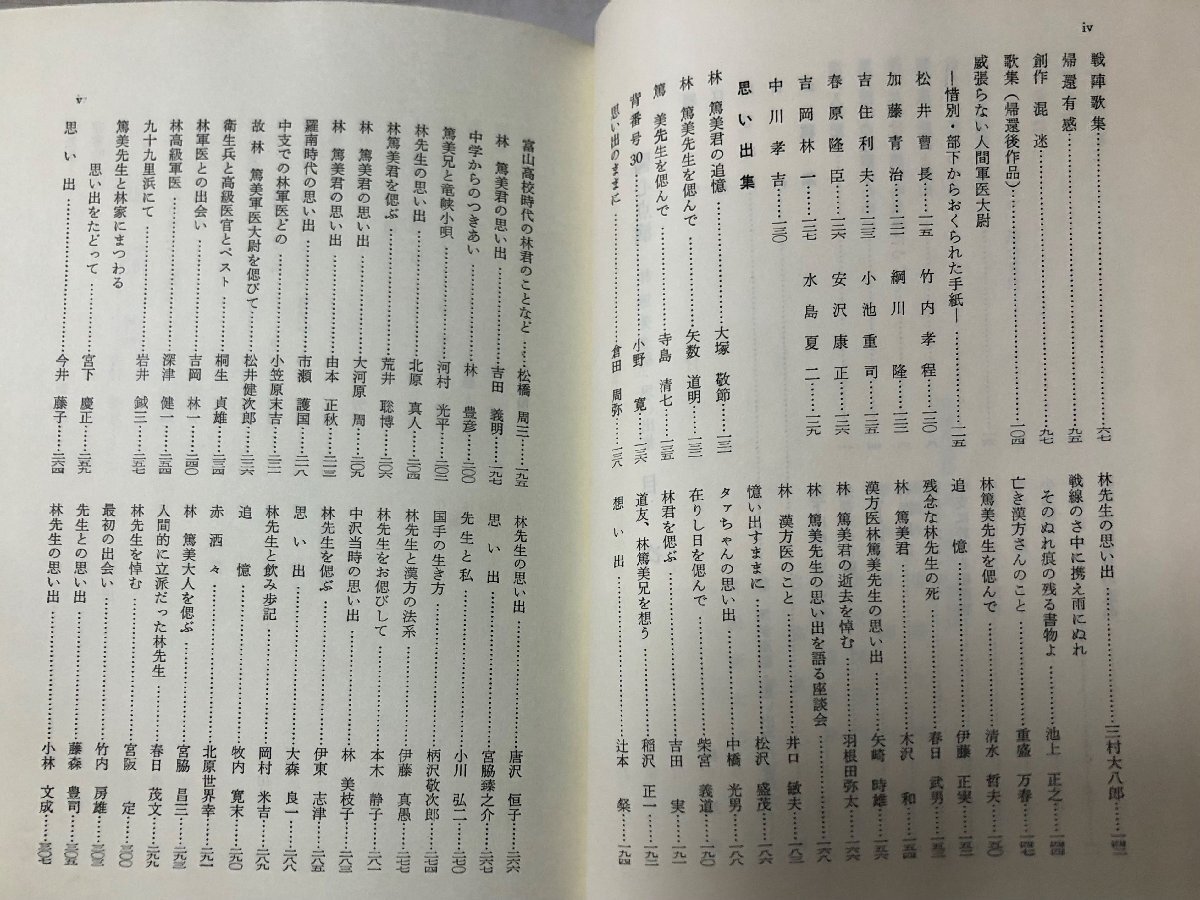 iv
戦陣歌集……六七
帰還有感……九五
創作 混迷……九七
歌集(帰還後作品)……一〇四
威張らない人間軍医大尉
―惜別・部下からおくられた手紙―……一一五
松井曹長……一一五 竹内孝程……一二〇
加藤青治……一二二 綱川隆……一二三
吉住利夫……一二三 小池重司……一二五
春原隆臣……一二六 安沢康正……一二六
吉岡林一……一二七 水島夏二……一二九
中川孝吉……一三〇
思い出集
林 篤美君の追憶……大塚 敬節……一三一
林 篤美先生を偲んで……矢数 道明……一三三
篤美先生を偲んで……寺島 清七……一三五
背番号30……小野 寛……一三六
思い出のままに……倉田 周弥……一三八
林先生の思い出……三村大八郎……一四二
戦線のさ中に携え雨にぬれ
そのぬれ痕の残る書物よ……池上 正之……一四四
亡き漢方さんのこと……重盛 万春……一四七
林篤美先生を偲んで……清水 哲夫……一五〇
追憶……伊藤 正実……一五二
残念な林先生の死……春日 武男……一五三
林 篤美君……木沢 和……一五四
漢方医林篤美先生の思い出……矢崎 時雄……一五六
林 篤美君の逝去を悼む……羽根田弥太……一六六
林 篤美先生の思い出を語る座談会……一六八
林 漢方医のこと……井口 敏夫……一八三
憶い出すままに……松沢 盛茂……一八六
タァちゃんの思い出……中橋 光男……一八八
在りし日を偲んで……柴宮 義道……一九〇
林君を偲ぶ……吉田 実……一九一
道友、林篤美兄を想う……稲沢 正一……一九二
想い出……辻本 祭……一九四
v
富山高校時代の林君のことなど……松橋 周三……一九五
林 篤美君の思い出……吉田 義明……一九七
中学からのつきあい……林 豊彦……二〇〇
篤美兄と竜峡小唄……河村 光平……二〇二
林先生の思い出……北原 真人……二〇四
林篤美君を偲ぶ……荒井 聡博……二〇六
林 篤美君の思い出……大河原 周……二〇九
林 篤美君の思い出……由本 正秋……二一三
羅南時代の思い出……市瀬 護国……二一八
中支での林軍医どの……小笠原末吉……二二二
故林 篤美軍医大尉を偲びて……松井健次郎……二二六
衛生兵と高級医官とペスト……桐生 貞雄……二三四
林軍医との出会い……吉岡 林一……二四〇
林高級軍医……深津 健一……二五四
九十九里浜にて……岩井 鉞三……二五七
篤美先生と林家にまつわる
思い出をたどって……宮下 慶正……二五九
思い出……今井 藤子……二六四
林先生の思い出……唐沢 恒子……二六六
思い出……宮脇臻之介……二六七
先生と私……小川 弘二……二七〇
国手の生き方……柄沢敬次郎……二七四
林先生と漢方の法系……伊藤 真愚……二七七
林先生をお偲びして……本木 静子……二七九
中沢当時の思い出……林 美枝子……二八三
林先生を偲ぶ……伊東 志津……二八五
思い出……大森 良一……二八七
林先生と飲み歩記……岡村 米吉……二八九
追憶……牧内 寛末……二九〇
赤洒々……北原世界幸……二九一
林 篤美大人を偲ぶ……宮脇 昌三……二九三
人間的に立派だった林先生……春日 茂文……二九九
林先生を悼む……宮阪 定……三〇〇
最初の出会い……竹内 房雄……三〇三
先生との思い出……藤森 豊司……三〇五
林先生の思い出……小林 文成……三〇七